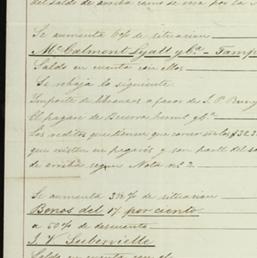 del saldo de arriba como se vea por la
Se aumenta 6% de situacion
Mc.Calmont Lyall y Ca. - Tamp
Saldo en cuenta con ellos
Se rebaja lo siguiente
Importe de abonares a favor de J. P.
El pagaré de Buenaventura
Los reditos que tienen que correr sobre $32.3
que existen en pagarés y son parte del saldo
de arriba segun Nota no. 2.
Se aumenta 3½% de situacion
Bonos del 17 por ciento
a 50% de descuento
J. V. Subervielle
Saldo en cuenta con el